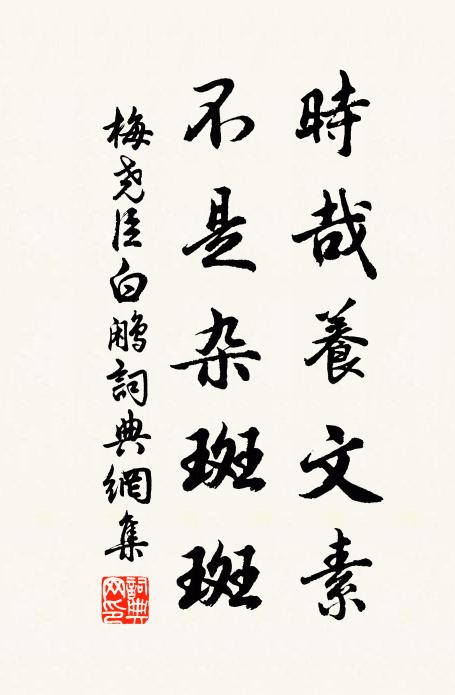 時哉養文素
不是杂斑斑
梅尧臣白鷴詞典網集
詞典网印